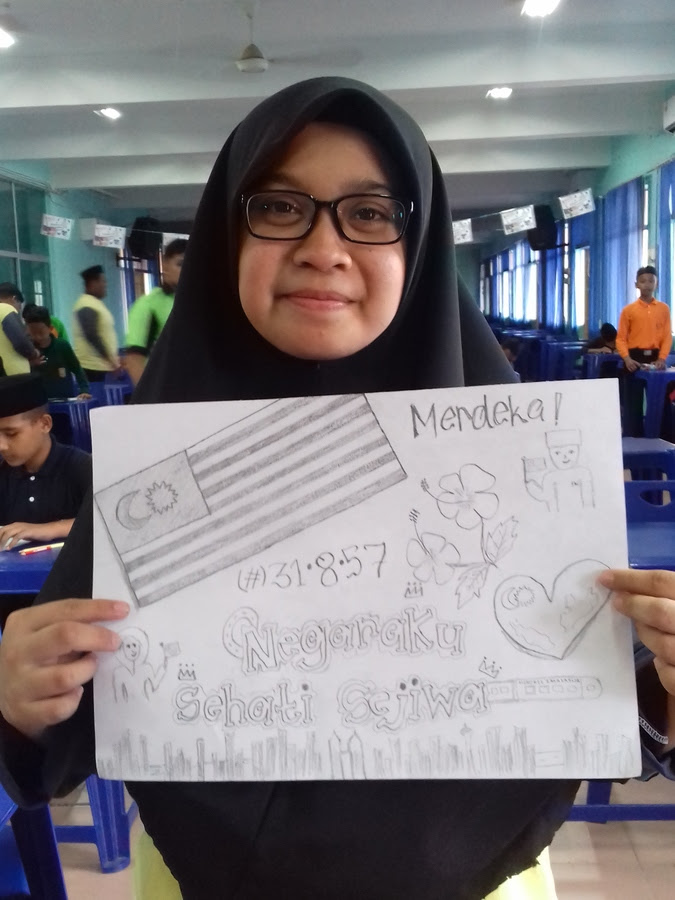 Merdeka!
(#)31·8·57
Negaraku
Sehati Sejiwa